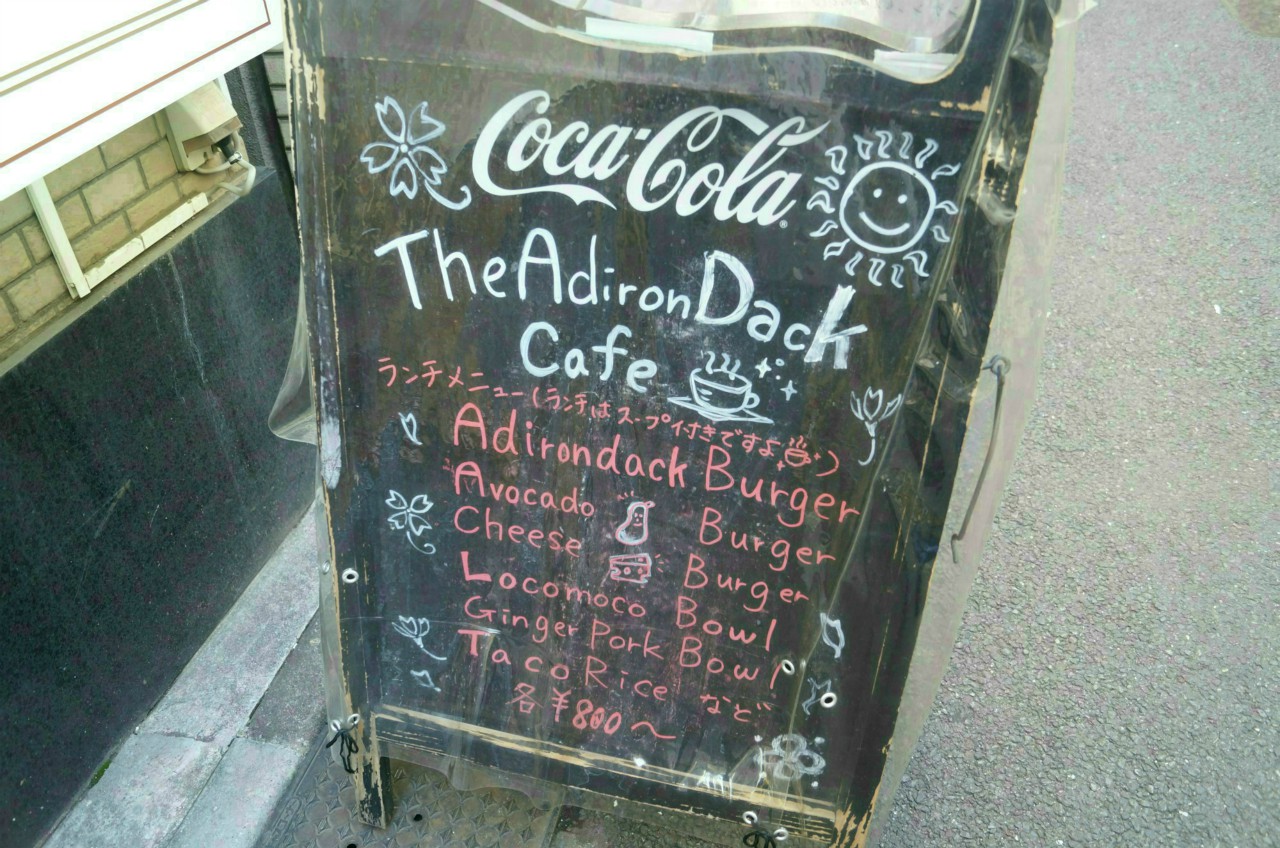 Coca-Cola
The AdironDack
Cafe
ランチメニュー(ランチはスープ付きですよ)
Adirondack Burger
Avocado Burger
Cheese Burger
Locomoco Bowl
Ginger Pork Bowl
Taco Rice など
各¥800〜